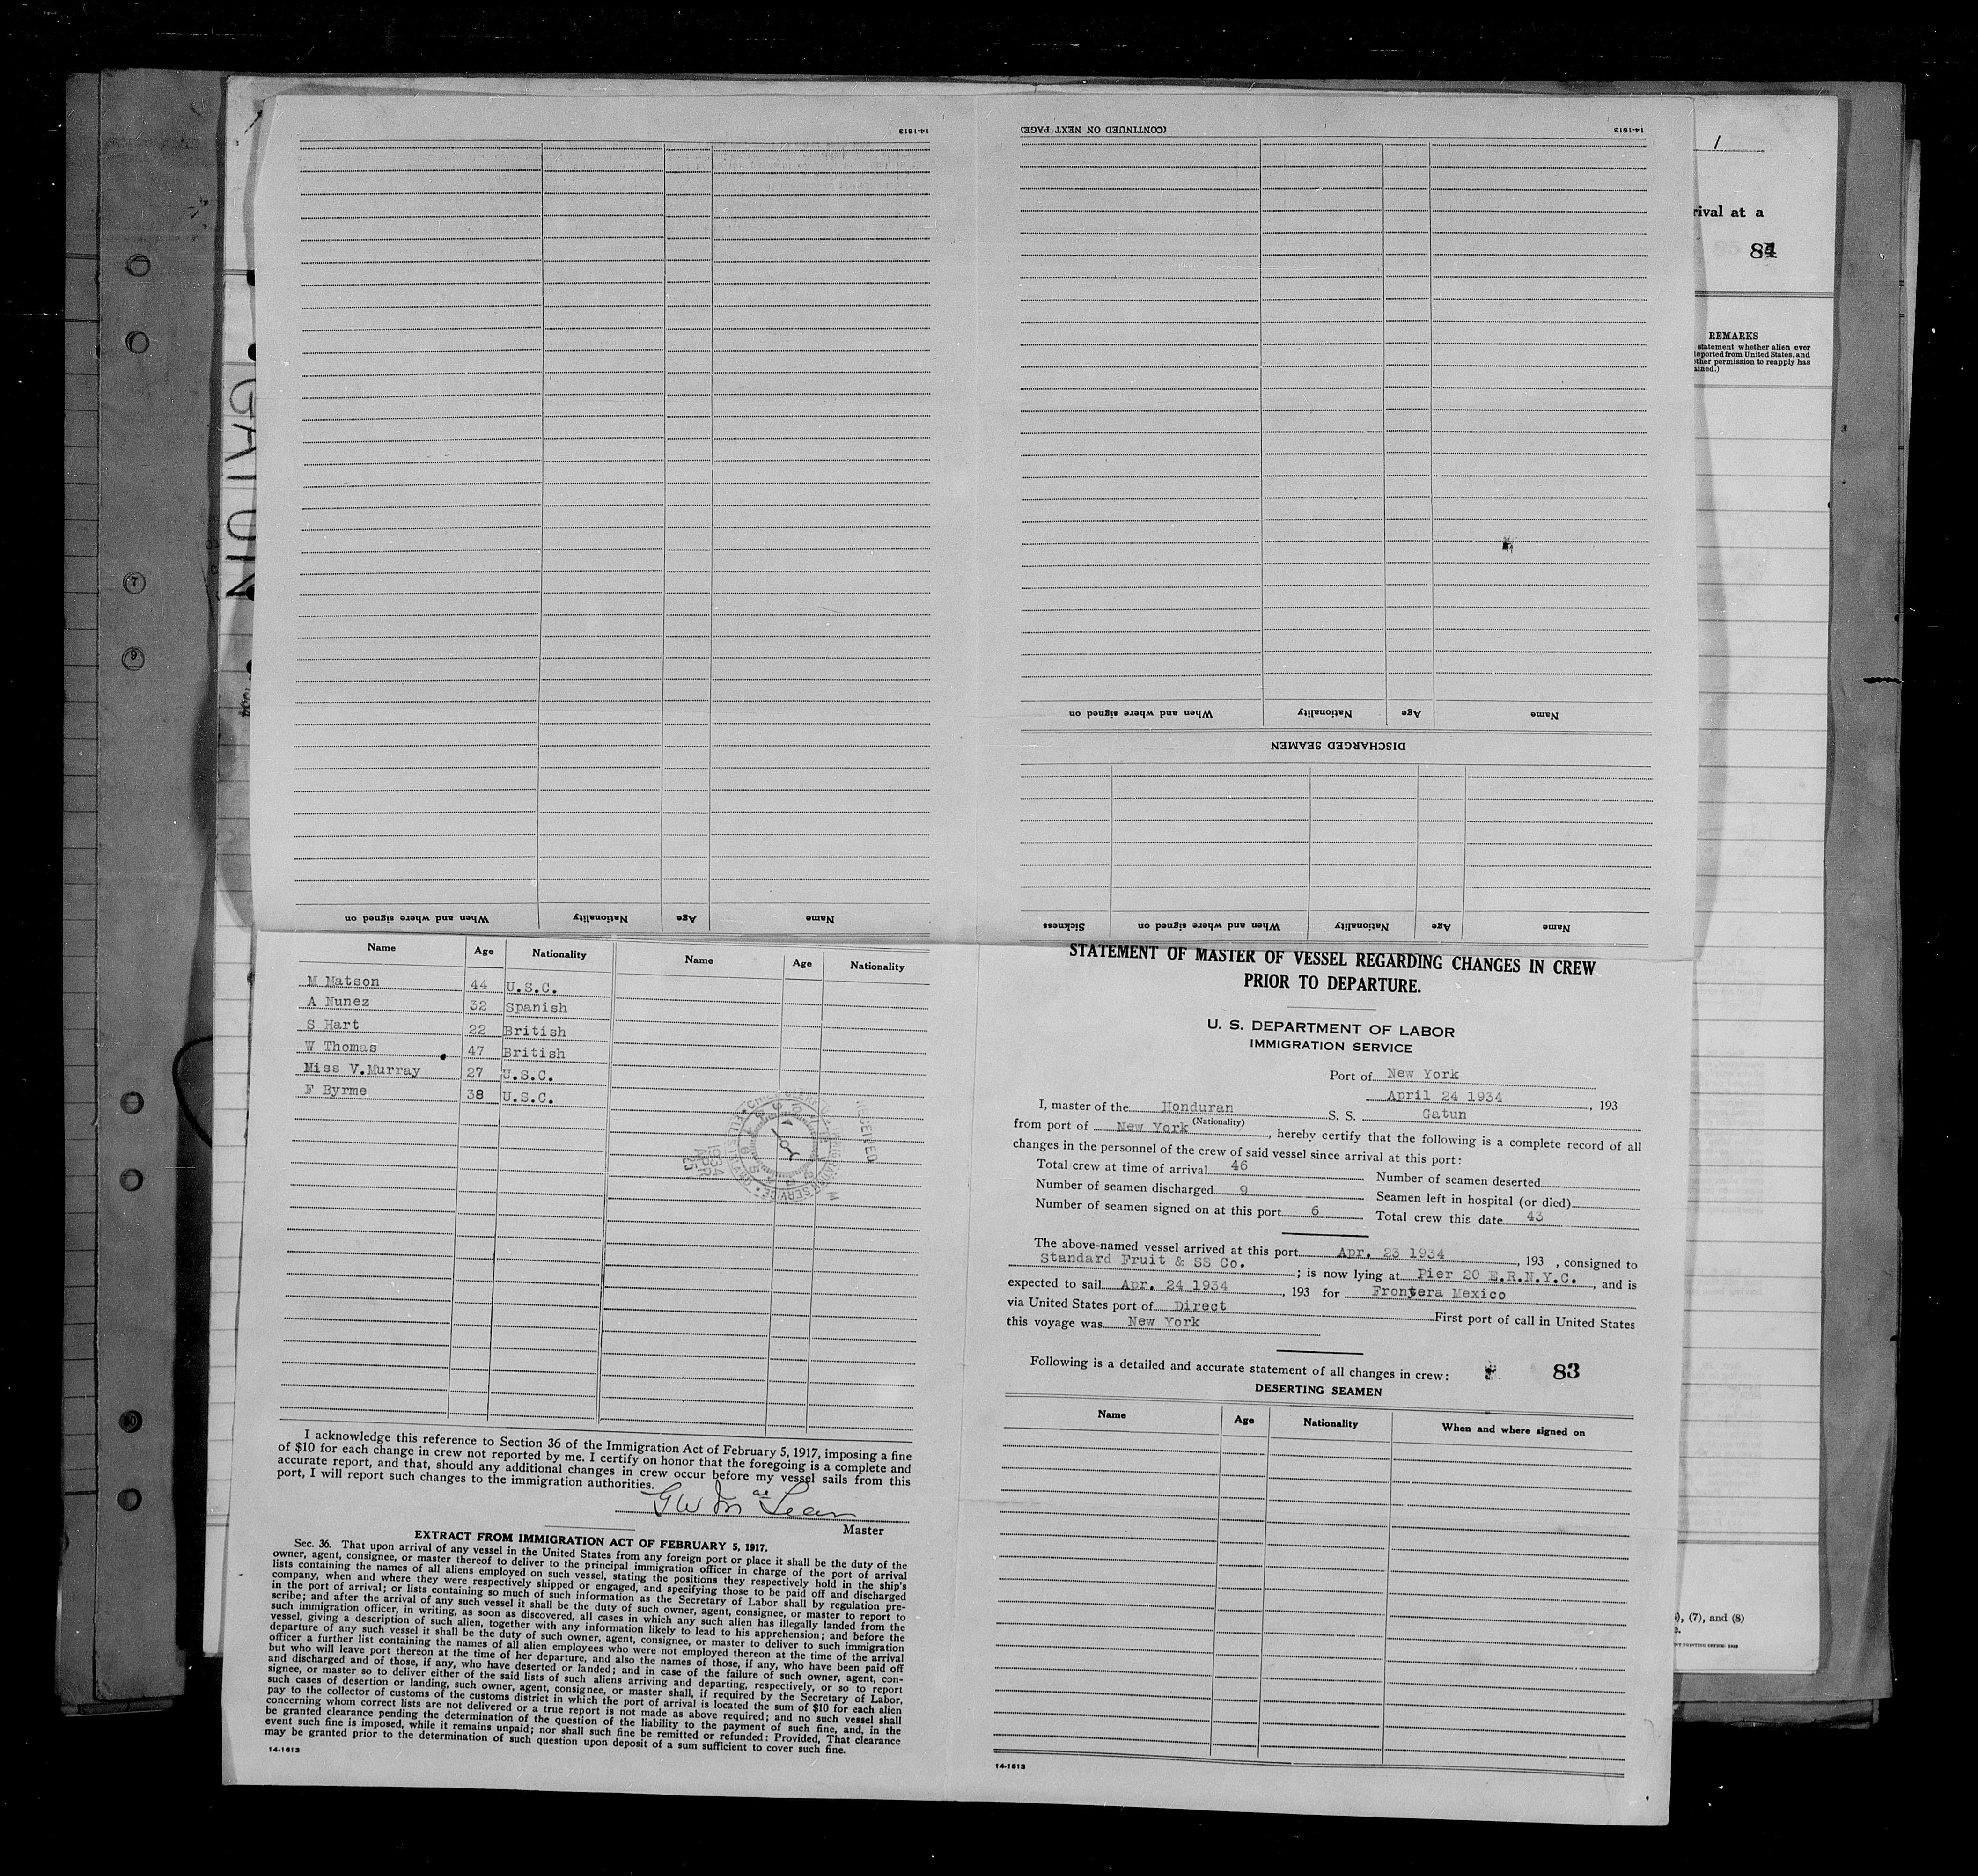 14-1613
(CONTINUED ON NEXT PAGE)
14-1613
When and where signed on Nationality Age Name
DISCHARGED SEAMEN
When and where signed on Nationality Age Name
Sickness When and where signed on Nationality Age Name
1
rival at a
84
REMARKS
statement whether alien ever
deported from United States, and
ther permission to reapply has
ained.)
GATUN
7
9
Name Age Nationality Name Age Nationality
M Matson 44 U.S.C.
A Nunez 32 Spanish
S Hart 22 British
W Thomas 47 British
Miss V.Murray 27 U.S.C.
F Byrme 38 U.S.C.
RECEIVED
1934
APR
25
I acknowledge this reference to Section 36 of the Immigration Act of February 5, 1917, imposing a fine
of $10 for each change in crew not reported by me. I certify on honor that the foregoing is a complete and
accurate report, and that, should any additional changes in crew occur before my vessel sails from this
port, I will report such changes to the immigration authorities.
G W McLean
Master
EXTRACT FROM IMMIGRATION ACT OF FEBRUARY 5, 1917.
Sec. 36. That upon arrival of any vessel in the United States from any foreign port or place it shall be the duty of the
owner, agent, consignee, or master thereof to deliver to the principal immigration officer in charge of the port of arrival
lists containing the names of all aliens employed on such vessel, stating the positions they respectively hold in the ship's
company, when and where they were respectively shipped or engaged, and specifying those to be paid off and discharged
in the port of arrival; or lists containing so much of such information as the Secretary of Labor shall by regulation pre-
scribe; and after the arrival of any such vessel it shall be the duty of such owner, agent, consignee, or master to report to
such immigration officer, in writing, as soon as discovered, all cases in which any such alien has illegally landed from the
vessel, giving a description of such alien, together with any information likely to lead to his apprehension; and before the
departure of any such vessel it shall be the duty of such owner, agent, consignee, or master to deliver to such immigration
officer a further list containing the names of all alien employees who were not employed thereon at the time of the arrival
but who will leave port thereon at the time of her departure, and also the names of those, if any, who have been paid off
and discharged and of those, if any, who have deserted or landed; and in case of the failure of such owner, agent, con-
signee, or master so to deliver either of the said lists of such aliens arriving and departing, respectively, or so to report
such cases of desertion or landing, such owner, agent, consignee, or master shall, if required by the Secretary of Labor,
pay to the collector of customs of the customs district in which the port of arrival is located the sum of $10 for each alien
concerning whom correct lists are not delivered or a true report is not made as above required; and no such vessel shall
be granted clearance pending the determination of the question of the liability to the payment of such fine, and, in the
event such fine is imposed, while it remains unpaid; nor shall such fine be remitted or refunded: Provided, That clearance
may be granted prior to the determination of such question upon deposit of a sum sufficient to cover such fine.
14-1613
STATEMENT OF MASTER OF VESSEL REGARDING CHANGES IN CREW
PRIOR TO DEPARTURE.
U. S. DEPARTMENT OF LABOR
IMMIGRATION SERVICE
Port of New York
April 24 1934, 193
I, master of the Honduran S. S. Gatun
(Nationality)
from port of New York, hereby certify that the following is a complete record of all
changes in the personnel of the crew of said vessel since arrival at this port:
Total crew at time of arrival 46 Number of seamen deserted
Number of seamen discharged 9 Seamen left in hospital (or died)
Number of seamen signed on at this port 6 Total crew this date 43
The above-named vessel arrived at this port Apr. 23 1934, 193 , consigned to
Standard Fruit & SS Co.; is now lying at Pier 20 E.R.N.Y.C., and is
expected to sail Apr. 24 1934, 193 for Frontera Mexico
via United States port of Direct First port of call in United States
this voyage was New York
Following is a detailed and accurate statement of all changes in crew: 83
DESERTING SEAMEN
Name Age Nationality When and where signed on
14-1613
), (7), and (8)